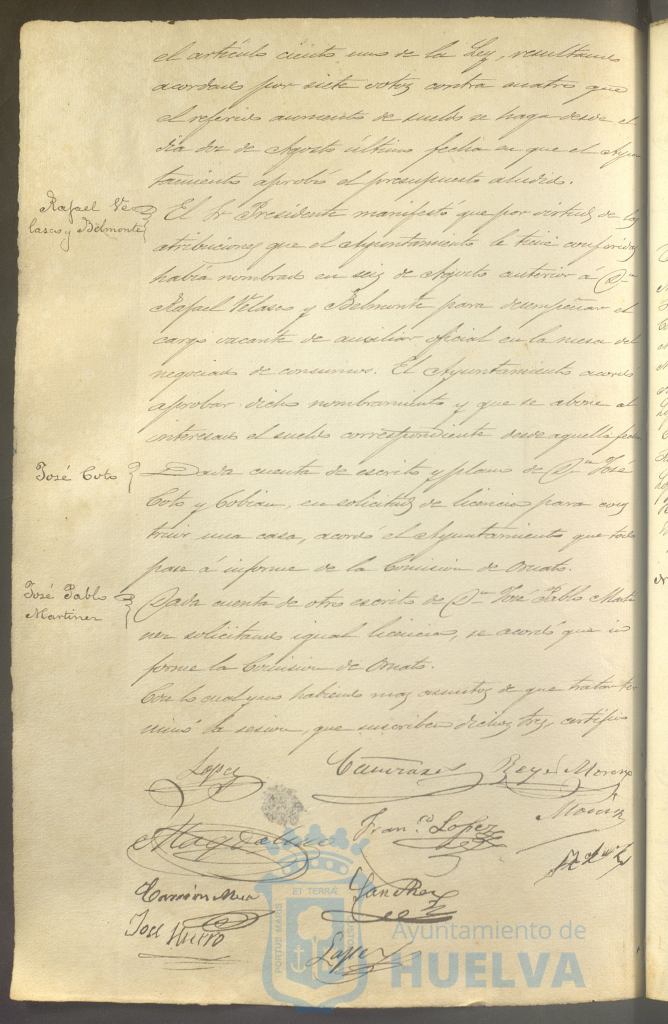 el artículo ciento uno de la Ley, resultando
acordado por siete votos contra cuatro que
el referido aumento de sueldo se haga desde el
día dos de Agosto último fecha en que el Ayun
tamiento aprobó el presupuesto aludido.
Rafael Ve
lasco y Belmonte
El Sr Presidente manifestó que por virtud de las
atribuciones que el Ayuntamiento le tiene conferidas
había nombrado en seis de Agosto anterior á Dn
Rafael Velasco y Belmonte para desempeñar el
cargo vacante de auxiliar oficial en la mesa del
negociado de consumos. El Ayuntamiento acordó
aprobar dicho nombramiento y que se abone al
interesado el sueldo correspondiente desde aquella fecha
José Coto
Dada cuenta de escrito y plano de Dn José
Coto y Cobian, en solicitud de licencia para cons
truir una casa, acordó el Ayuntamiento que todo
pase á informe de la Comision de Ornato.
José Pablo
Martinez
Dada cuenta de otro escrito de Dn José Pablo Marti
nez solicitando igual licencia, se acordó que in
forme la Comision de Ornato.
Con lo cual y no habiendo mas asuntos de que tratar ter
minó la sesion, que suscriben dichos Sres, certifico
Lopez
Reyes Moreno
Franco Lopez
Sanchez
José
Lopez
PORTUS MARIS ET TERRÆ CUSTODIA
Ayuntamiento de
HUELVA